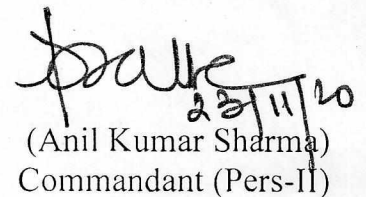 23/11/20
(Anil Kumar Sharma)
Commandant (Pers-II)